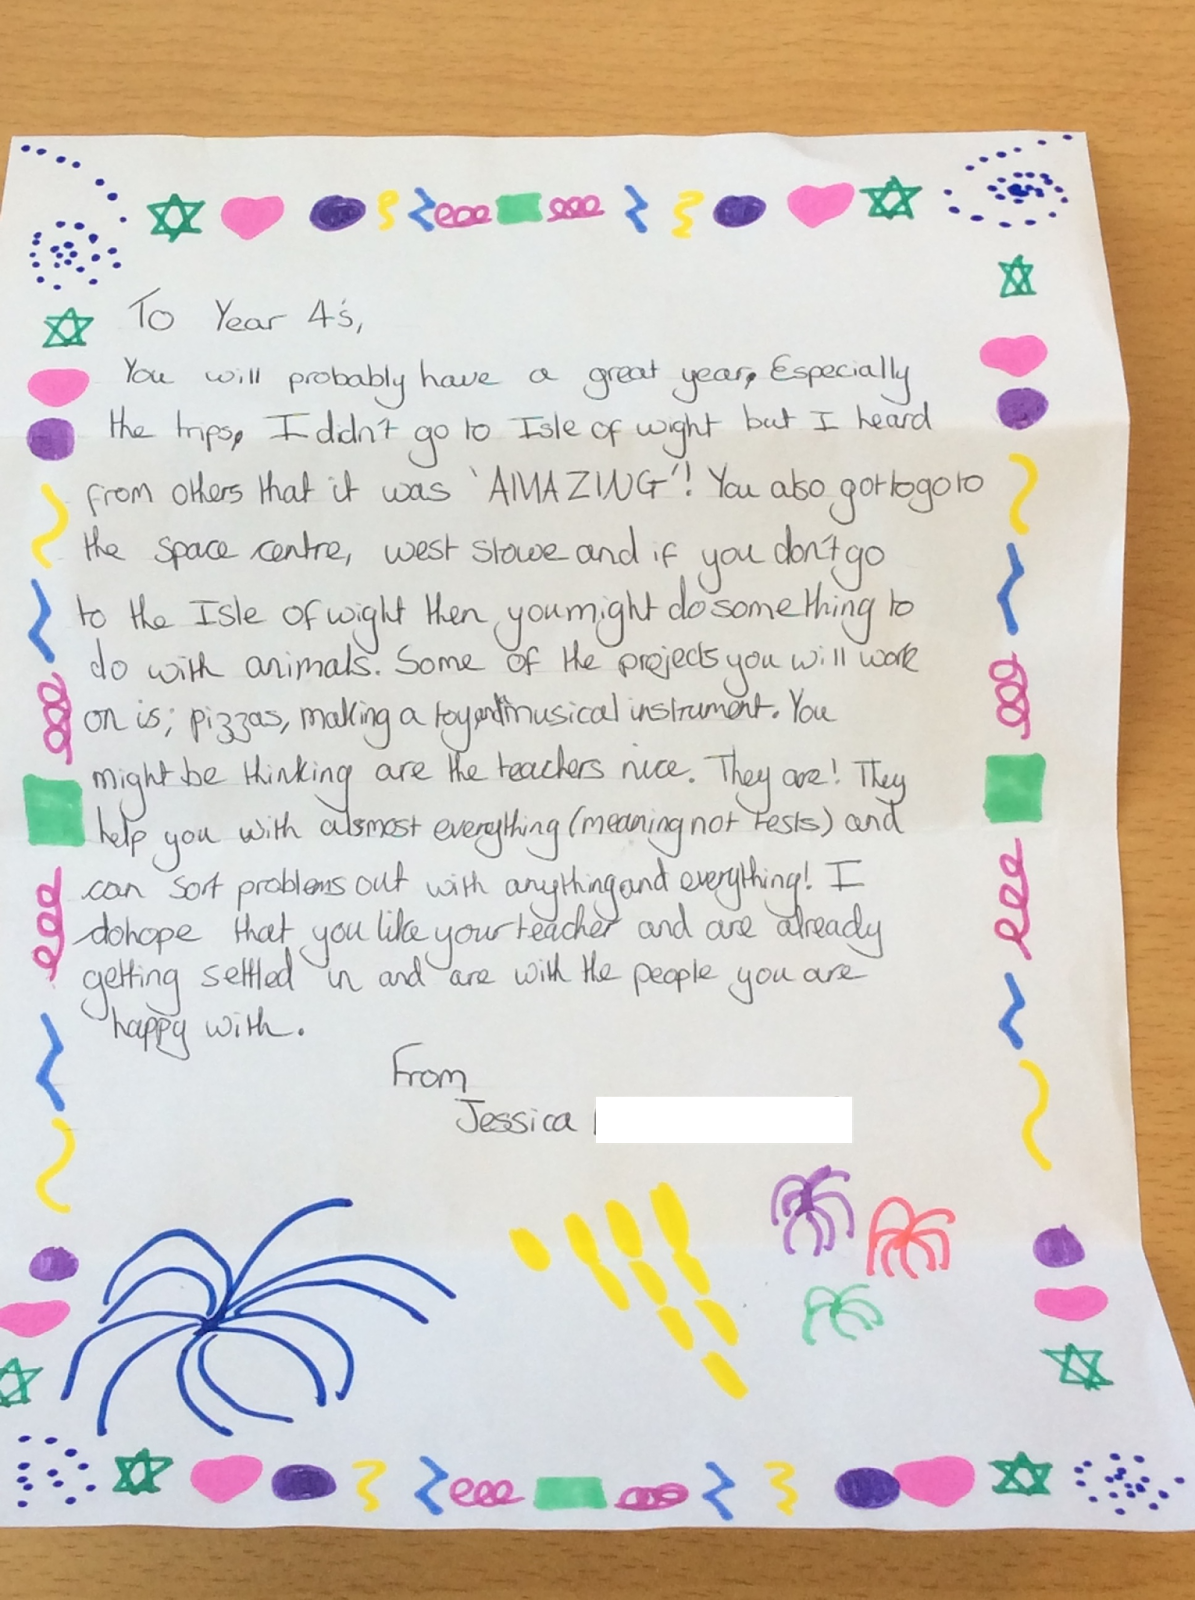 To Year 4's,
You will probably have a great year, Especially
the trips, I didn't go to Isle of wight but I heard
from others that it was 'AMAZING'! You also got to go to
the space centre, west stowe and if you don't go
to the Isle of wight then you might do something to
do with animals. Some of the projects you will work
on is; pizzas, making a toy and musical instrument. You
might be thinking are the teachers nice. They are! They
help you with alsmost everything (meaning not tests) and
can sort problems out with anything and everything! I
do hope that you like your teacher and are already
getting settled in and are with the people you are
happy with.
From
Jessica